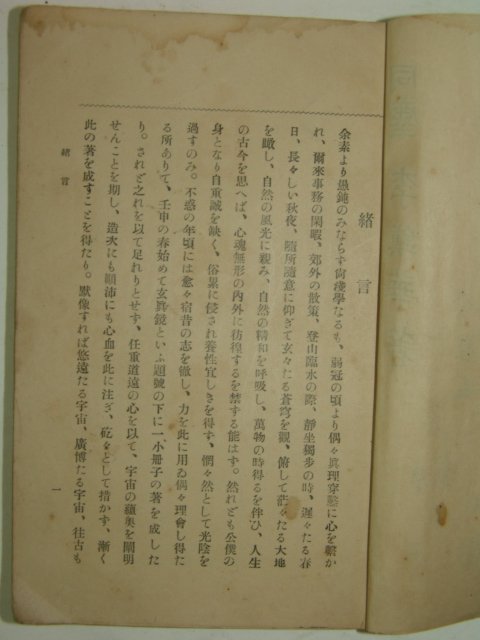 緒言
余素より愚鈍のみならず尙淺學なるも、弱冠の頃より偶々眞理穿鑿に心を繫か
れ、爾來事務の閑暇、郊外の散策、登山臨水の際、靜坐獨步の時、遲々たる春
日、長々しい秋夜、隨所隨意に仰ぎて玄々たる蒼穹を觀、俯して茫々たる大地
を瞰し、自然の風光に親み、自然の精和を呼吸し、萬物の時得るを伴ひ、人生
の古今を思へば、心魂無形の內外に彷徨するを禁する能はす。然れども公僕の
身となり自重誠を缺く、俗累に侵され養性宜しきを得ず、惘々然として光陰を
過すのみ。不惑の年頃には愈々宿昔の志を徹し、力を此に用ゐ偶々理會し得た
る所ありて、壬申の春始めて玄眞鏡といふ題號の下に一小册子の著を成した
り。されど之れを以て足れりとせず、任重道遠の心を以て、宇宙の蘊奧を闡明
せんことを期し、造次にも顚沛にも心血を此に注ぎ、矻々として措かず、漸く
此の著を成すことを得たり。默像すれば悠遠たる宇宙、廣博たる宇宙、往古も
緒言
一